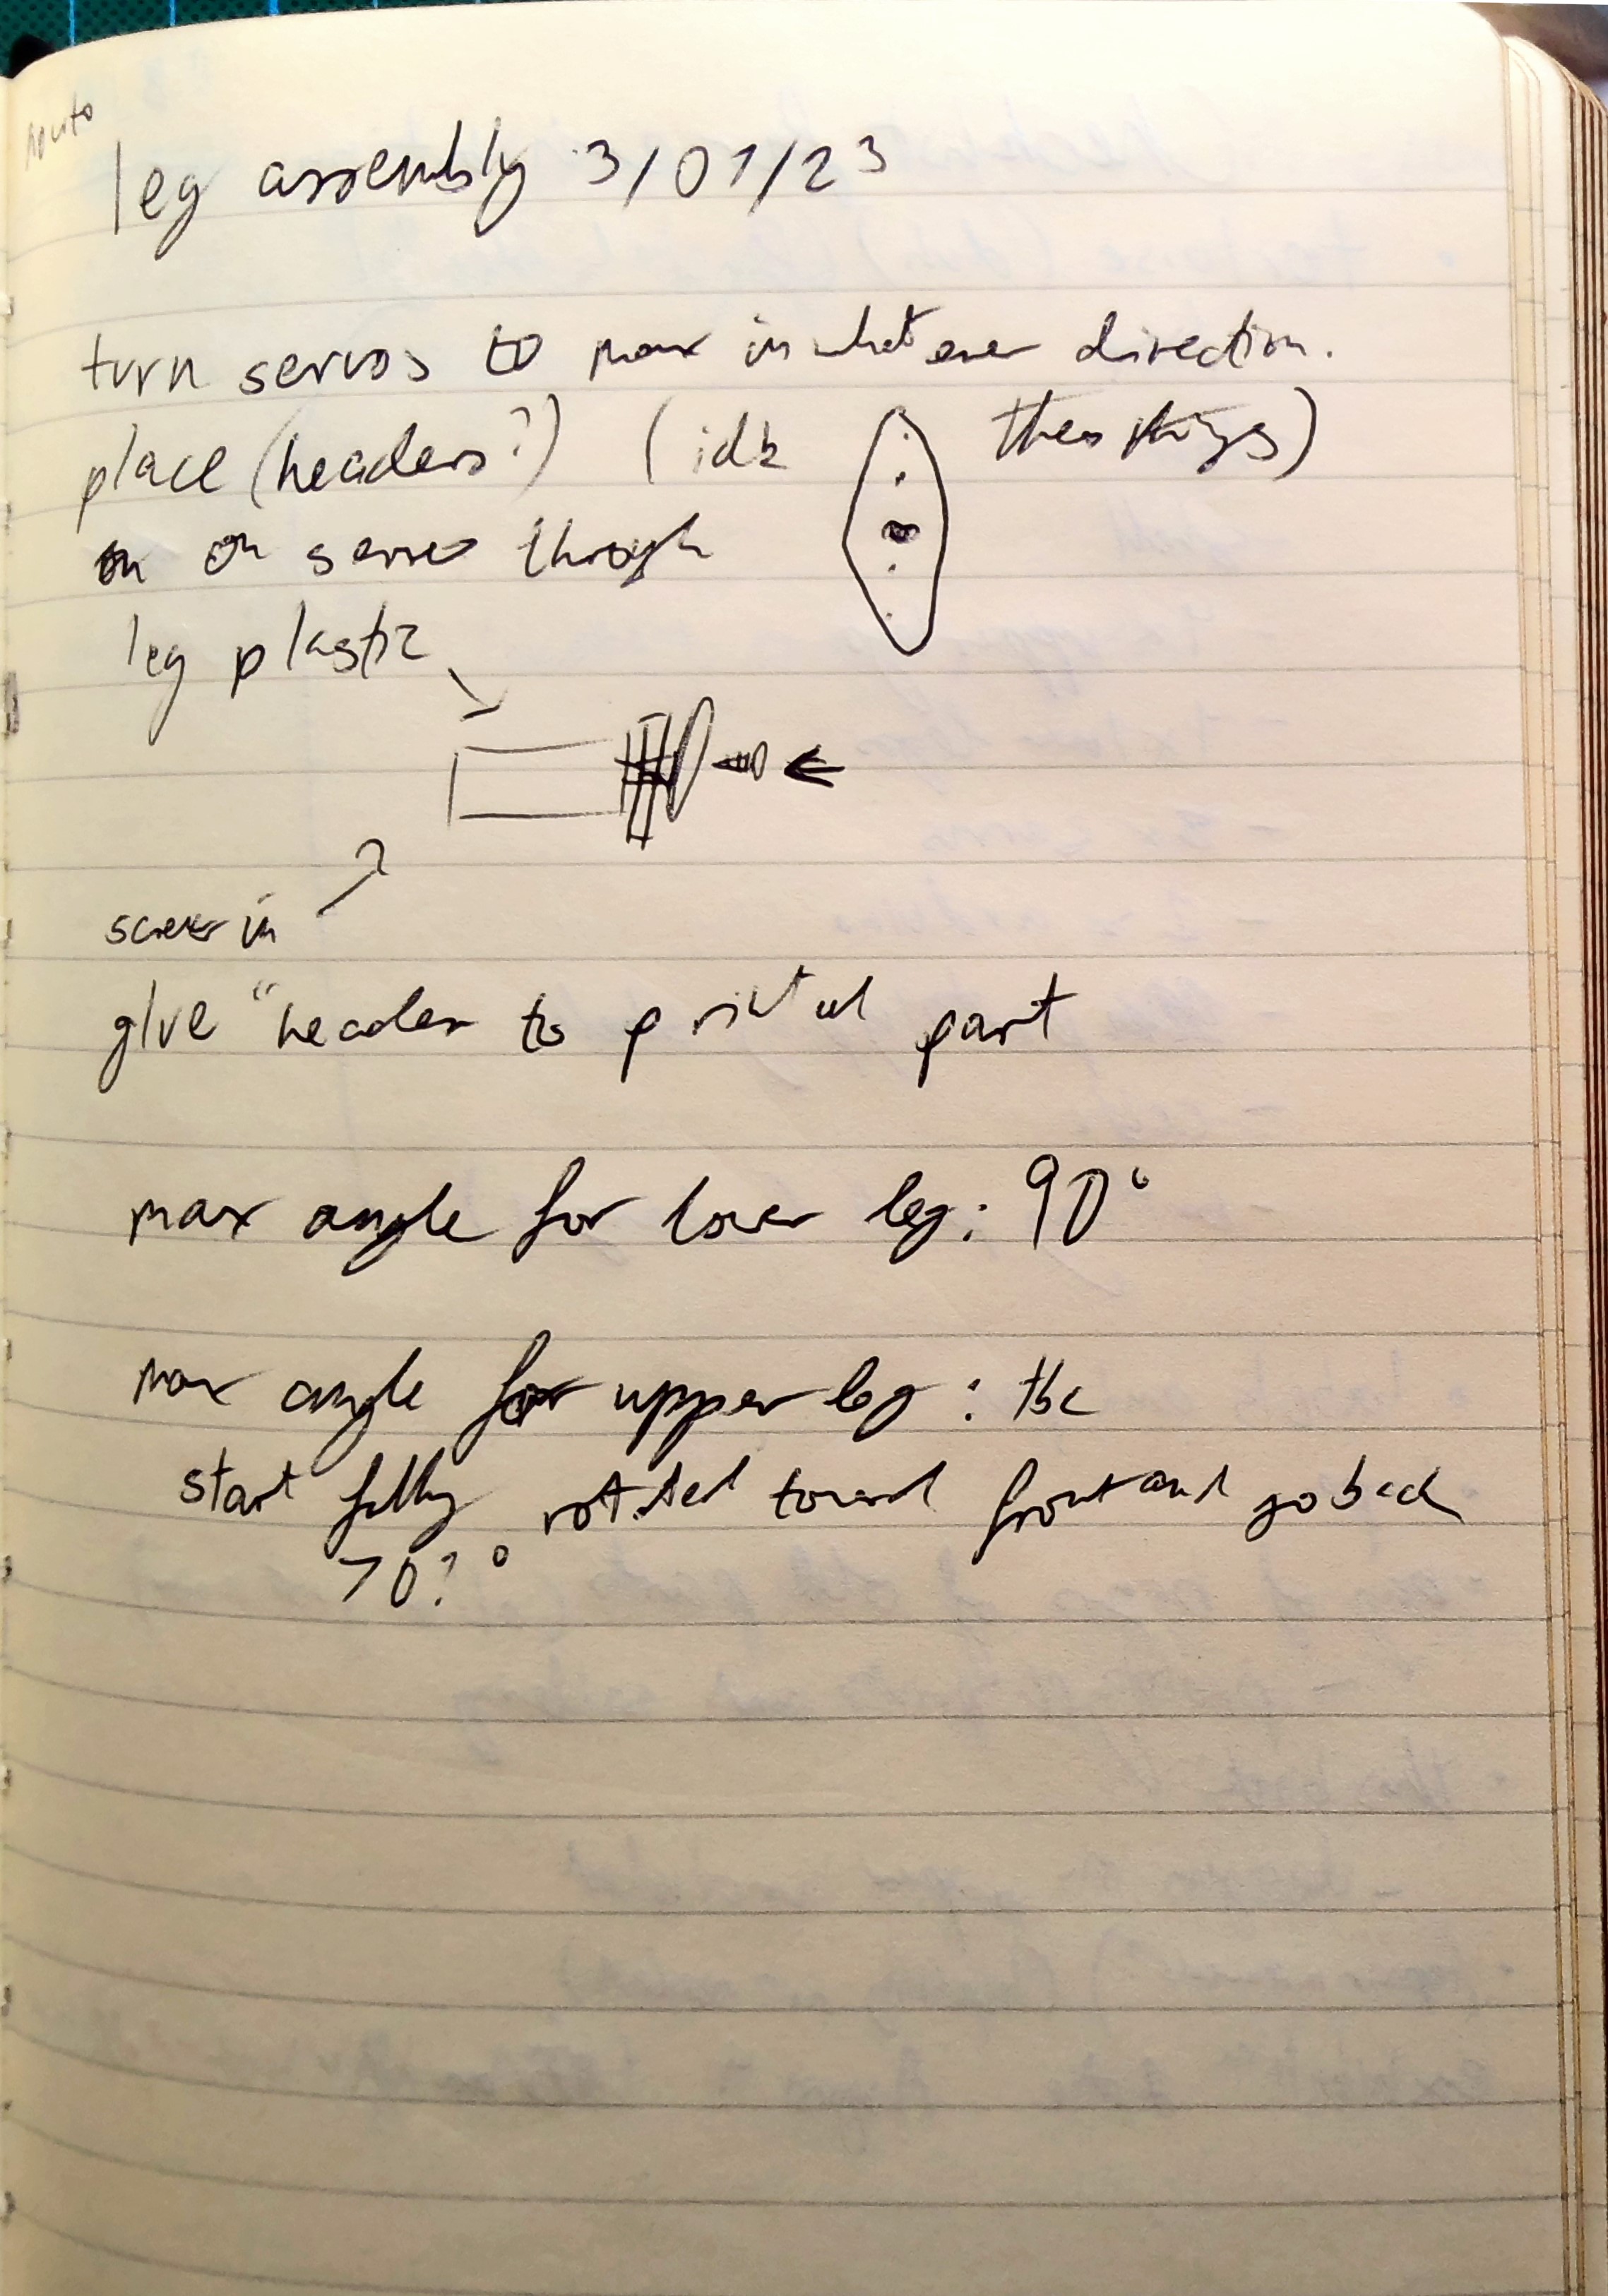 leg assembly 3/01/23
turn servos to max in whatever direction.
place (headers?) (idk these things)
on servo through
leg plastic
screw in
glue "header to printed part
max angle for lower leg: 90°
max angle for upper leg: tbc
start fully rotated toward front and go back
70?°